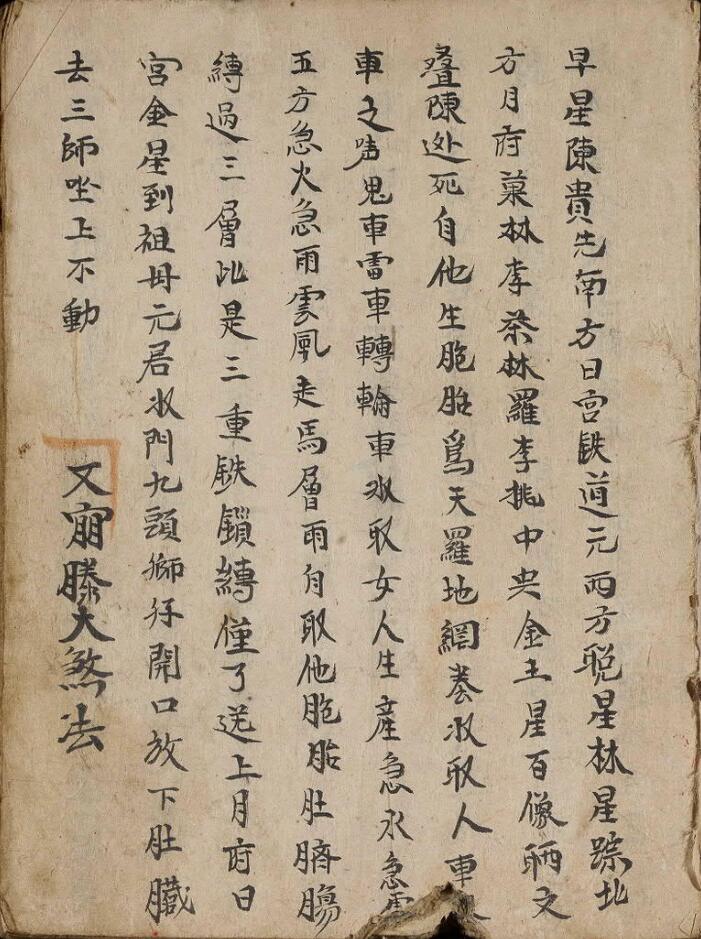 早星陳貴先南方日宫鉄道元西方聡星林星踪北
方月府菓林李茶林羅李桃中央金王星百像晒文
疊陳处死自他生胞胎爲天羅地網養收取人車
車之声鬼車雷車轉輪車收取女人生産急水急雷
五方急火急雨雲風走馬層雨自取他胞胎肚臍腸
縛過三層比是三重鉄鎖縛僅了送上月府日
宫金星到祖母元居收門九頭獅仔開口放下肚臓
去三師坐上不動
又崩勝大煞法